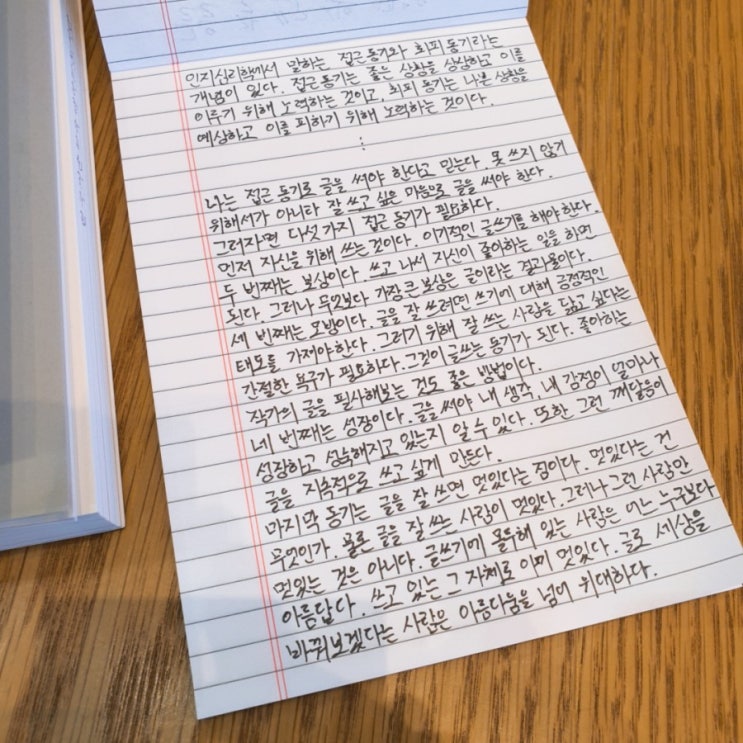 인지심리학에서 말하는 접근동기와 회피동기라는
개념이 있다. 접근동기는 좋은 상황을 상상하고 이를
이루기 위해 노력하는 것이고, 회피 동기는 나쁜 상황을
예상하고 이를 피하기 위해 노력하는 것이다.
⋮
나는 접근 동기로 글을 써야 한다고 믿는다 못 쓰지 않기
위해서가 아니라 잘 쓰고 싶은 마음으로 글을 써야 한다.
그러자면 다섯 가지 접근 동기가 필요하다.
먼저 자신을 위해 쓰는 것이다. 이기적인 글쓰기를 해야 한다.
두 번째는 보상이다 쓰고 나서 자신이 좋아하는 일을 하면
된다. 그러나 무엇보다 가장 큰 보상은 글이라는 결과물이다.
세 번째는 모방이다. 글을 잘 쓰려면 쓰기에 대해 긍정적인
태도를 가져야 한다. 그러기 위해 잘 쓰는 사람을 닮고 싶다는
간절한 욕구가 필요하다. 그것이 글쓰는 동기가 된다. 좋아하는
작가의 글을 필사해보는 것도 좋은 방법이다.
네 번째는 성장이다. 글을 써야 내 생각, 내 감정이 얼마나
성장하고 성숙해지고 있는지 알 수 있다. 또한 그런 깨달음이
글을 지속적으로 쓰고 싶게 만든다.
마지막 동기는 글을 잘 쓰면 멋있다는 점이다. 멋있다는 건
무엇인가. 물론 글을 잘 쓰는 사람이 멋있다. 그러나 그런 사람만
멋있는 것은 아니다. 글쓰기에 몰두해 있는 사람은 어느 누구보다
아름답다. 쓰고 있는 그 자체로 이미 멋있다. 글로 세상을
바꿔보겠다는 사람은 아름다움을 넘어 위대하다.